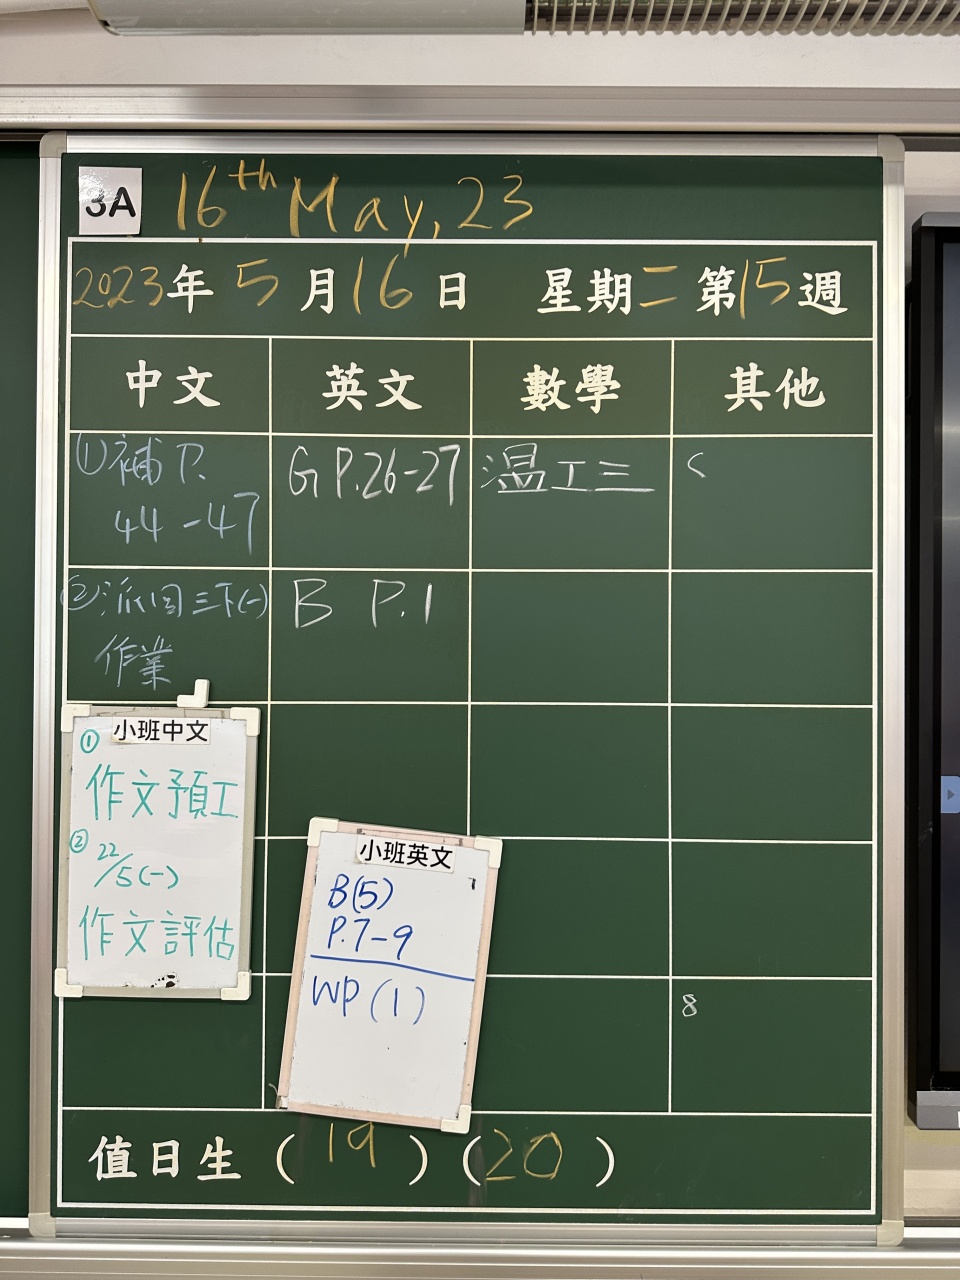 3A 16th May, 23
2023年5月16日 星期二 第15週
中文 英文 數學 其他
①補 P. G P.26-27 温工三
44-47
②派周三下(一) B P.1
作業
小班中文
①
作文預工
②
22/5(一)
作文評估
小班英文
B(5)
P.7-9
WP(1)
8
值日生(19)(20)